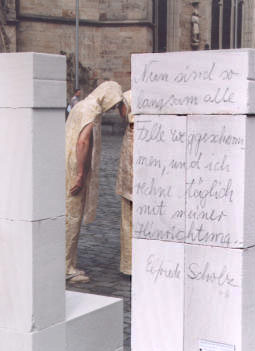 Nun sind so
langsam alle
Felle weggeschwom
men, und ich
rechne täglich
mit meiner
Hinrichtung..
Elfriede Scholz